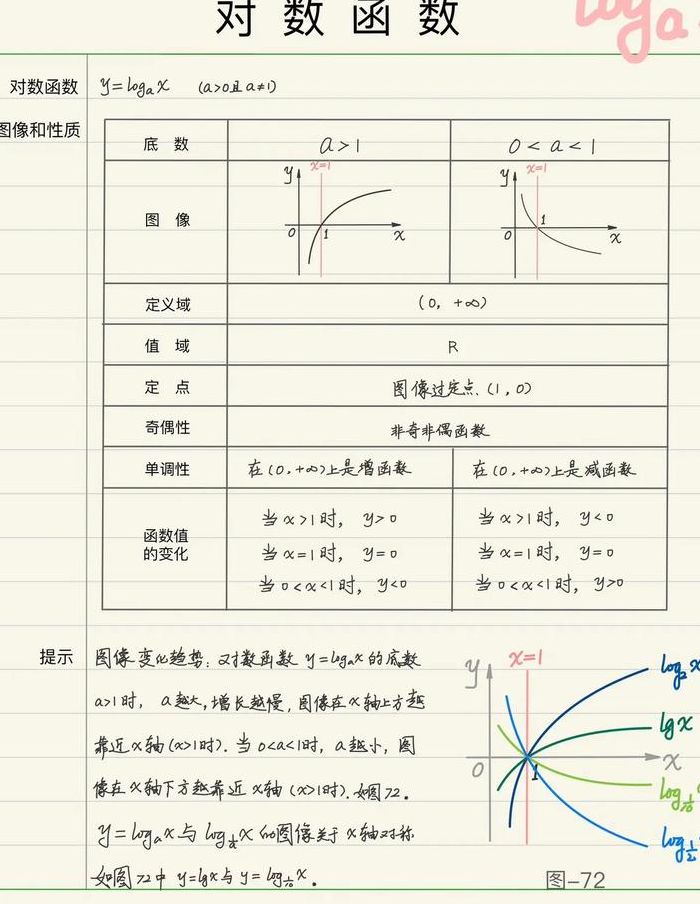 对数函数
loga
对数函数 y=logₐx (a>0且a≠1)
图像和性质
底 数 a>1 0<a<1
图 像
y x=1 0 1 x
y x=1 0 1 x
定义域 (0, +∞)
值 域 R
定 点 图像过定点(1,0)
奇偶性 非奇非偶函数
单调性 在(0,+∞)上是增函数 在(0,+∞)上是减函数
函数值
的变化
当x>1时, y>0 当x>1时, y<0
当x=1时, y=0 当x=1时, y=0
当0<x<1时, y<0 当0<x<1时, y>0
提示 图像变化趋势:对数函数 y=logₐx 的底数
a>1时, a越大,增长越慢,图像在x轴上方越
靠近x轴(x>1时). 当0<a<1时, a越小, 图
像在x轴下方越靠近x轴(x>1时). 如图72.
y=logₐx与log_{1/a}x的图像关于x轴对称
如图72中 y=lgx与y=log_{1/10}x.
y x=1 log₂x
lgx
0 1 x
log_{1/10}
log_{1/2}
图-72